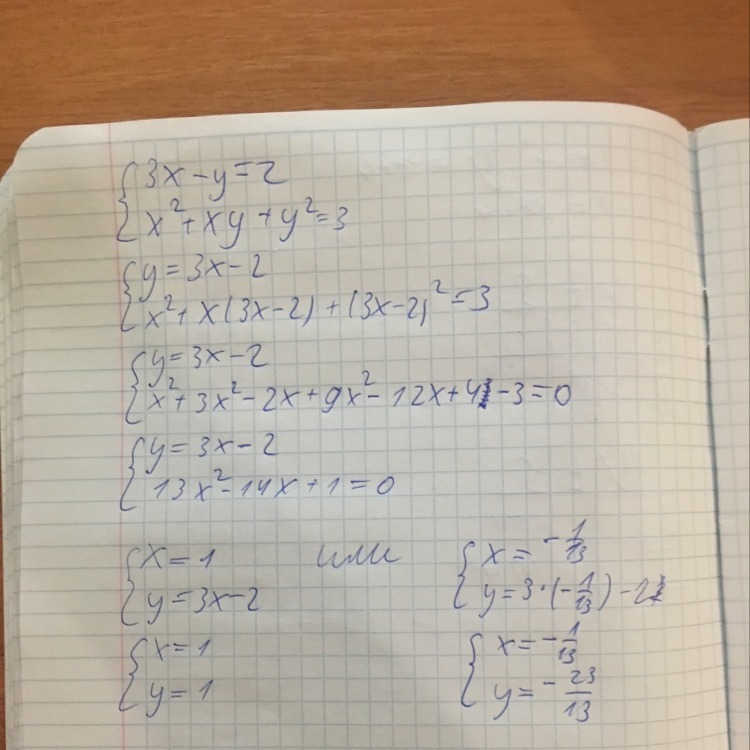 { 3x - y = 2
x² + xy + y² = 3
{ y = 3x - 2
x² + x(3x-2) + (3x-2)² = 3
{ y = 3x - 2
x² + 3x² - 2x + 9x² - 12x + 4 - 3 = 0
{ y = 3x - 2
13x² - 14x + 1 = 0
{ x = 1 или { x = -1/13
y = 3x - 2 y = 3·(-1/13) - 2
{ x = 1 { x = -1/13
y = 1 y = -23/13